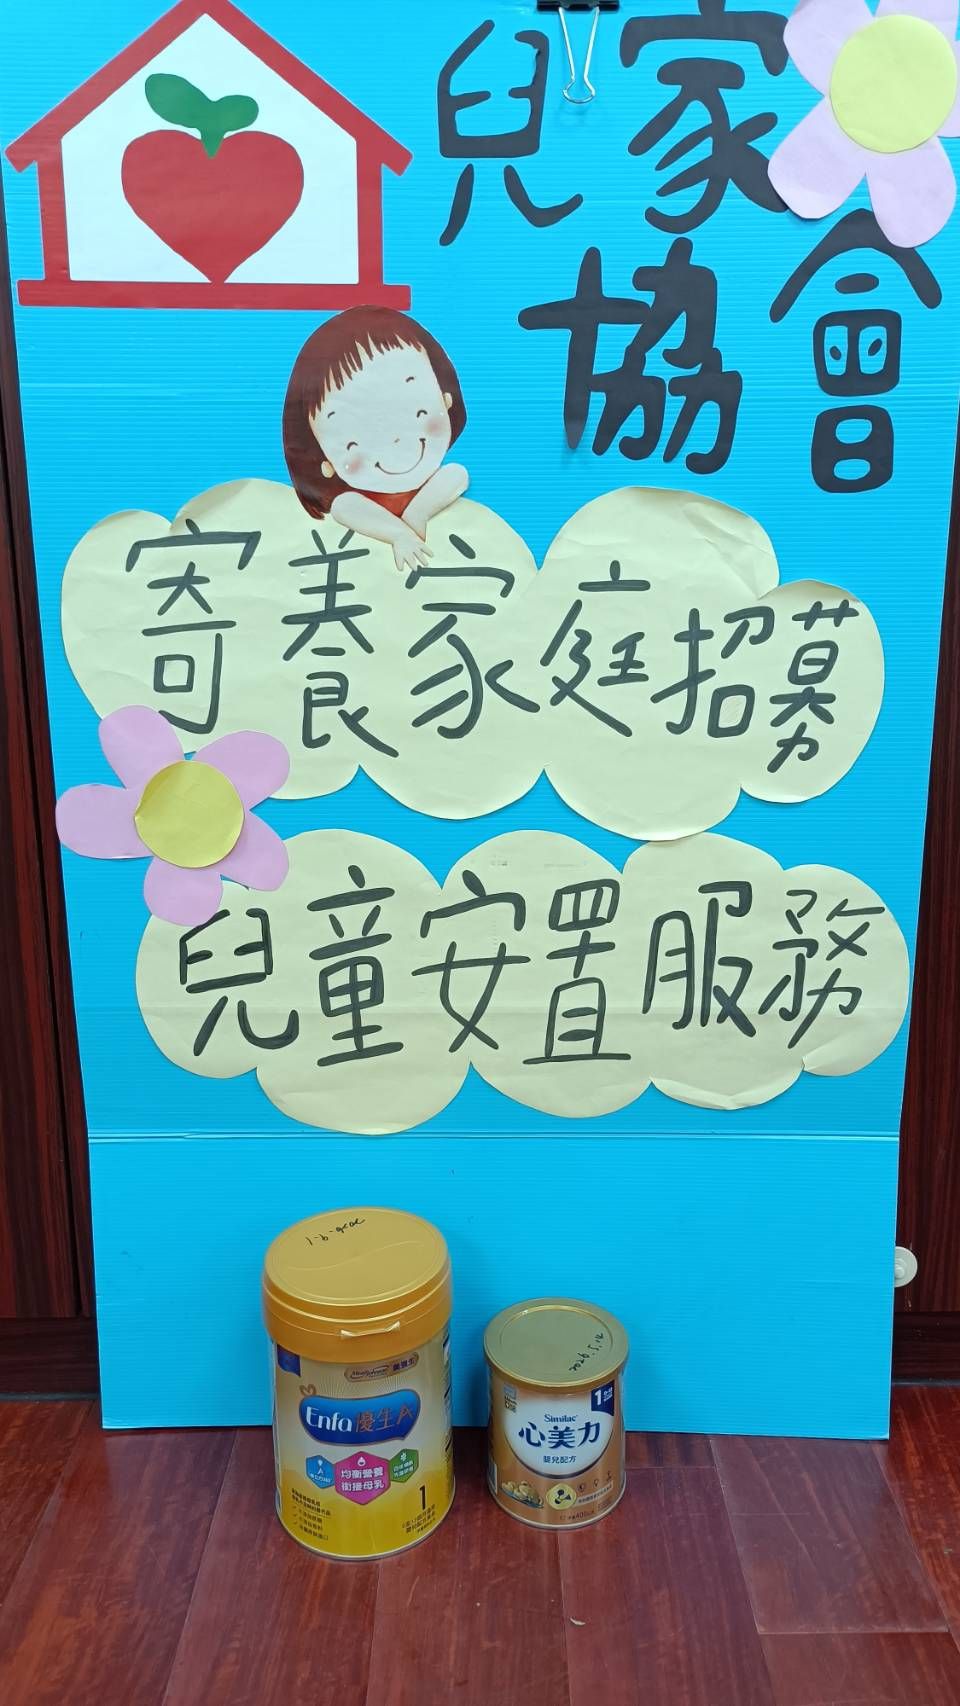 兒家
協會
寄養家庭招募
兒童安置服務
Enfa優生A
均衡營養
銜接母乳
1
1
Similac
心美力
嬰兒配方